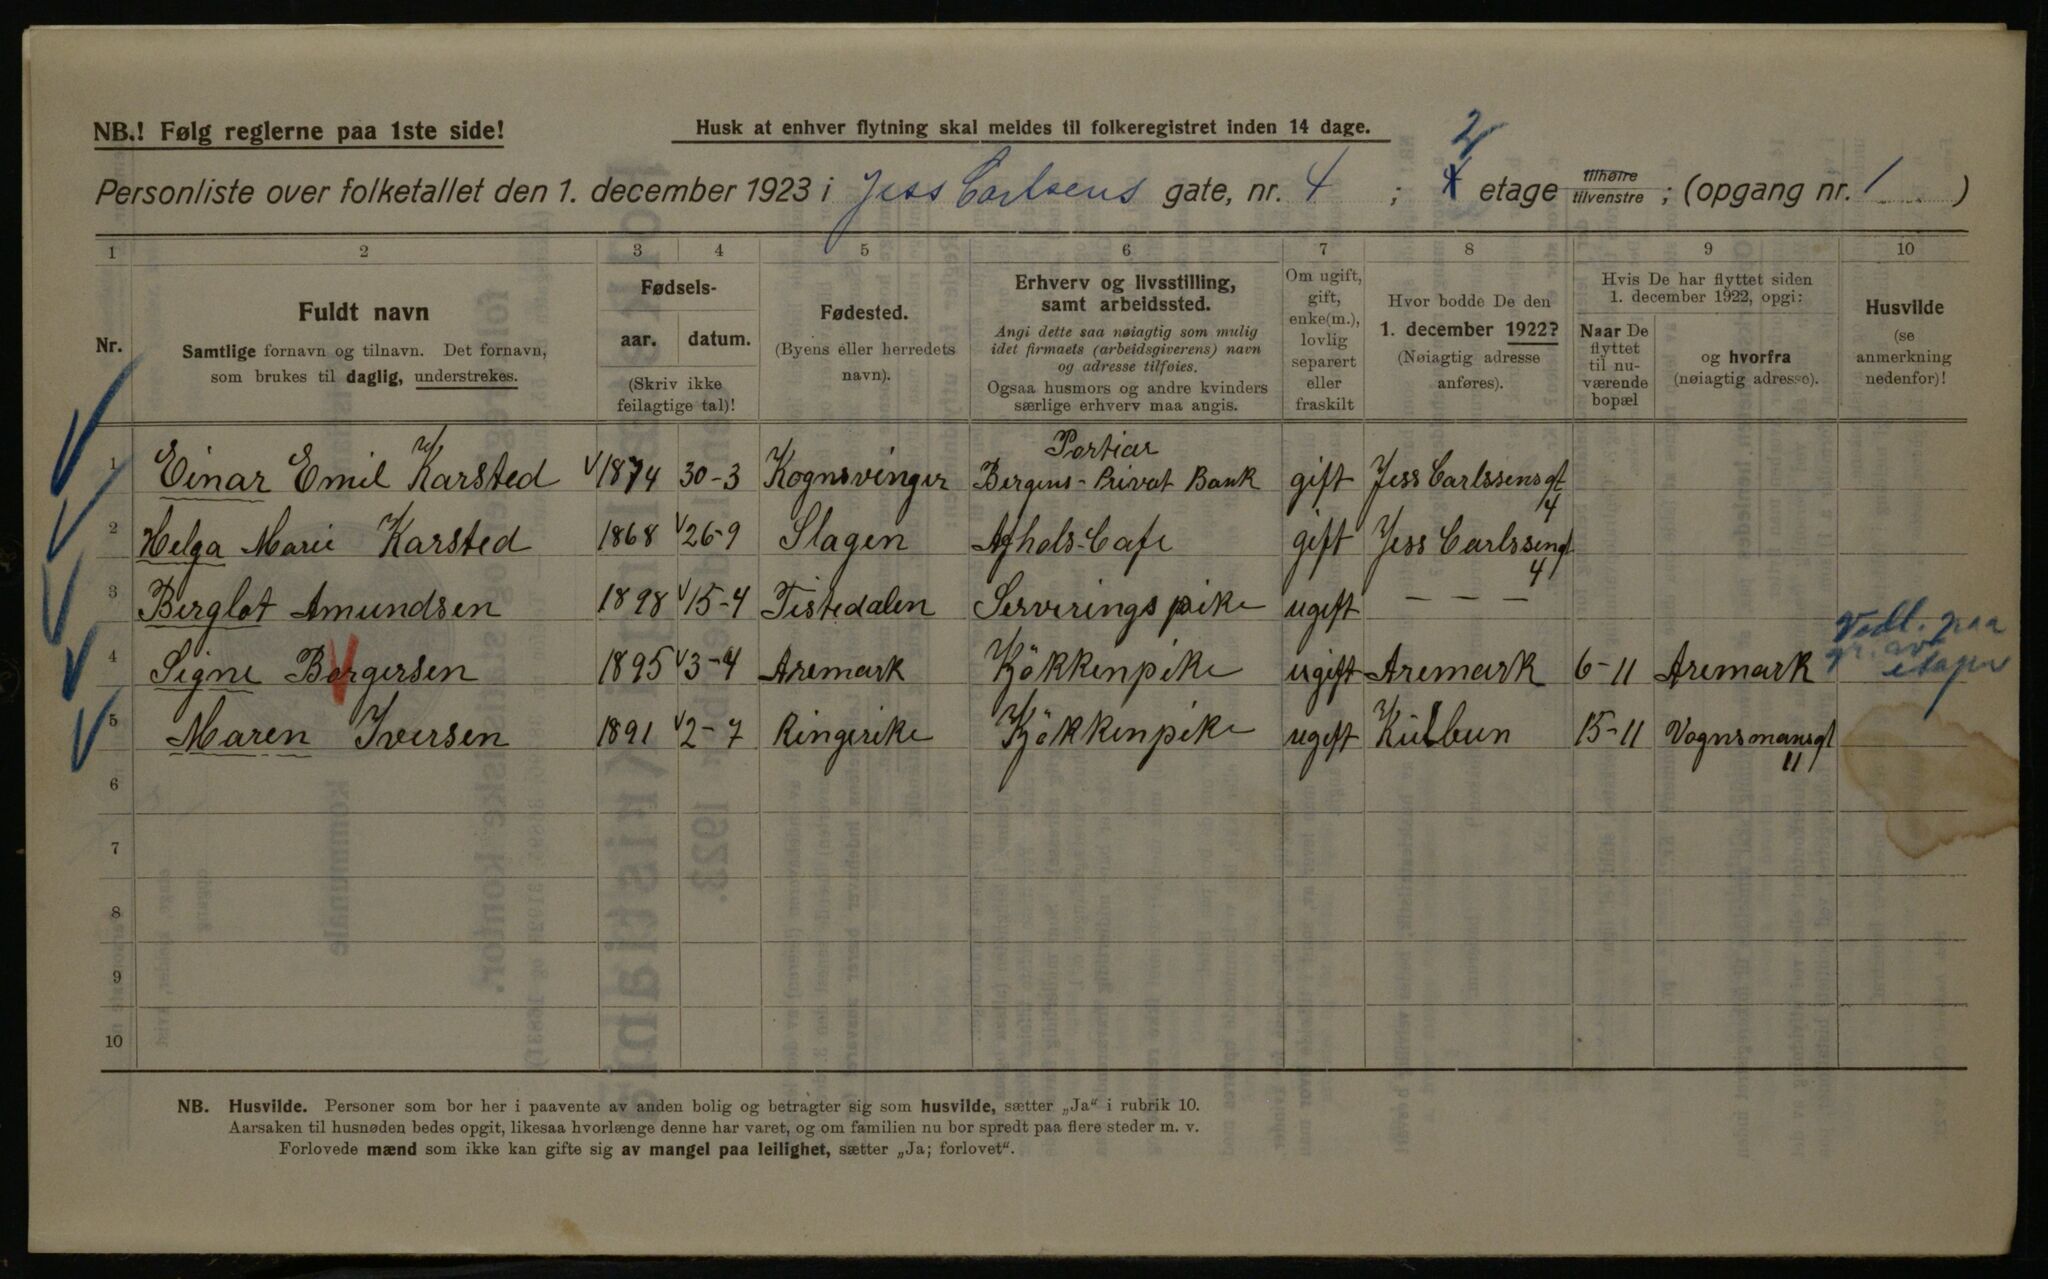 NB.! Følg reglerne paa 1ste side!
Husk at enhver flytning skal meldes til folkeregistret inden 14 dage.
2
Personliste over folketallet den 1. december 1923 i Jess Carlsens gate, nr. 4 ; 4 etage tilhøire tilvenstre ; (opgang nr. 1 )
1 2 3 4 5 6 7 8 9 10
Nr.
Fuldt navn
Samtlige fornavn og tilnavn. Det fornavn,
som brukes til daglig, understrekes.
Fødsels-
aar. datum.
(Skriv ikke
feilagtige tal)!
Fødested.
(Byens eller herredets
navn).
Erhverv og livsstilling,
samt arbeidssted.
Angi dette saa nøiagtig som mulig
idet firmaets (arbeidsgiverens) navn
og adresse tilføies.
Ogsaa husmors og andre kvinders
særlige erhverv maa angis.
Om ugift,
gift,
enke(m.),
lovlig
separert
eller
fraskilt
Hvor bodde De den
1. december 1922?
(Nøiagtig adresse
anføres).
Hvis De har flyttet siden
1. december 1922, opgi:
Naar De
flyttet
til nu-
værende
bopæl
og hvorfra
(nøiagtig adresse).
Husvilde
(se
anmerkning
nedenfor)!
Portiar
1 Einar Emil Karsted 1874 30-3 Kognsvinger Bergens-Privat Bank gift Jess Carlssensgt
4
2 Helga Marie Karsted 1868 26-9 Slagen Afhols-Cafe gift Jess Carlssengt
4
3 Berglot Amundsen 1898 15-4 Tistedalen Serverings pike ugift - - -
4 Signe Borgersen 1895 3-4 Aremark Kökkenpike ugift Aremark 6-11 Aremark
Vedl. paa
etager
5 Maren Iversen 1891 2-7 Ringerike Kökkenpike ugift Kulbun 15-11 Vognsmansgt
11
6
7
8
9
10
NB. Husvilde. Personer som bor her i paavente av anden bolig og betragter sig som husvilde, sætter „Ja“ i rubrik 10.
Aarsaken til husnøden bedes opgit, likesaa hvorlænge denne har varet, og om familien nu bor spredt paa flere steder m. v.
Forlovede mænd som ikke kan gifte sig av mangel paa leilighet, sætter „Ja; forlovet“.